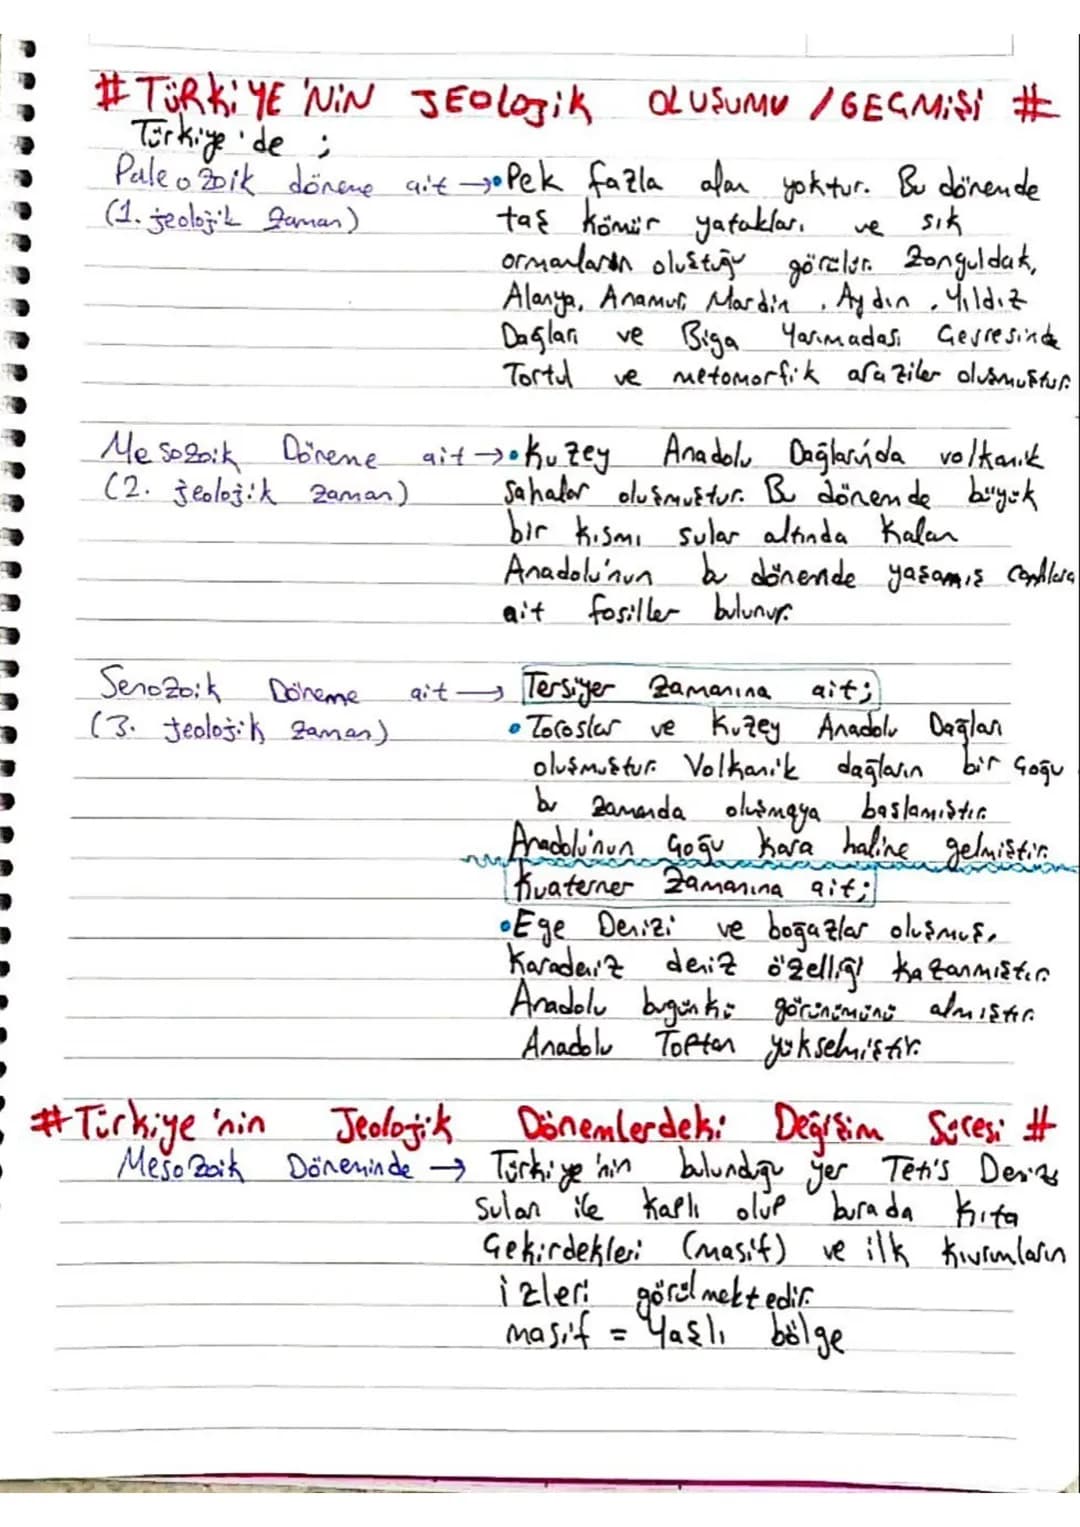 # TÜRKİYE'NİN JEOLOJİK OLUŞUMU / GEÇMİŞİ #
Türkiye'de ;
Paleozoik döneme ait → • Pek fazla alan yoktur. Bu dönemde
(1. jeolojik zaman) taş kömür yatakları ve sık
ormanların oluştuğu görülür. Zonguldak,
Alanya, Anamur, Mardin, Aydın, Yıldız
Dağları ve Biga Yarımadası Çevresinde
Tortul ve metomorfik araziler oluşmuştur.
Mesozoik Döneme ait → • Kuzey Anadolu Dağlarında volkanik
(2. jeolojik zaman) Sahalar oluşmuştur. Bu dönemde büyük
bir kısmı sular altında kalan
Anadolu'nun bu dönemde yaşamış canlılara
ait fosiller bulunur.
Senozoik Döneme ait → Tersiyer Zamanına ait;
(3. jeolojik zaman) • Toroslar ve Kuzey Anadolu Dağları
oluşmuştur. Volkanik dağların bir çoğu
bu zamanda oluşmaya başlamıştır.
Anadolu'nun Çoğu kara haline gelmiştir.
Kuaterner Zamanına ait;
• Ege Denizi ve boğazlar oluşmuş,
Karadeniz deniz özelliği kazanmıştır.
Anadolu bugünkü görünümünü almıştır.
Anadolu Toptan yükselmiştir.
# Türkiye'nin Jeolojik Dönemlerdeki Değişim Süreci #
Mesozoik Döneminde → Türkiye'nin bulunduğu yer Tetis Denizi
Suları ile kaplı olup burada kıta
Çekirdekleri (masif) ve ilk kıvrımların
izleri görülmektedir.
masif = Yaşlı bölge